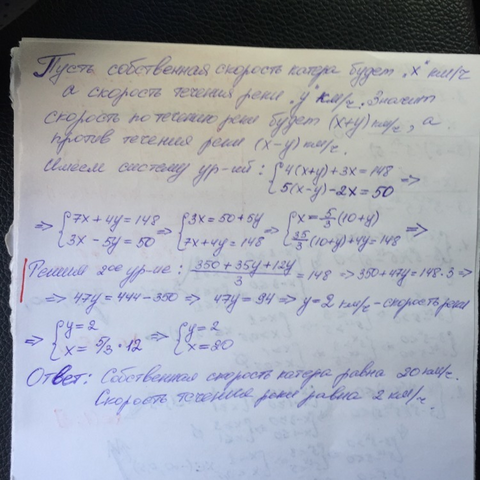 Пусть собственная скорость катера будет „x" км/ч
а скорость течения реки „y" км/ч. Значит
скорость по течению реки будет (x+y) км/ч, а
против течения реки (x-y) км/ч.
Имеем систему ур-ий: { 4(x+y)+3x=148 =>
5(x-y)-2x=50
=> { 7x+4y=148 => { 3x=50+5y => { x=5/3(10+y) =>
3x-5y=50 7x+4y=148 35/3(10+y)+4y=148
Решим 2ое ур-ие: (350+35y+12y)/3 = 148 => 350+47y=148·3 =>
=> 47y=444-350 => 47y=94 => y=2 км/ч - скорость реки
=> { y=2 => { y=2
x=5/3·12 x=20
Ответ: Собственная скорость катера равна 20 км/ч.
Скорость течения реки равна 2 км/ч.